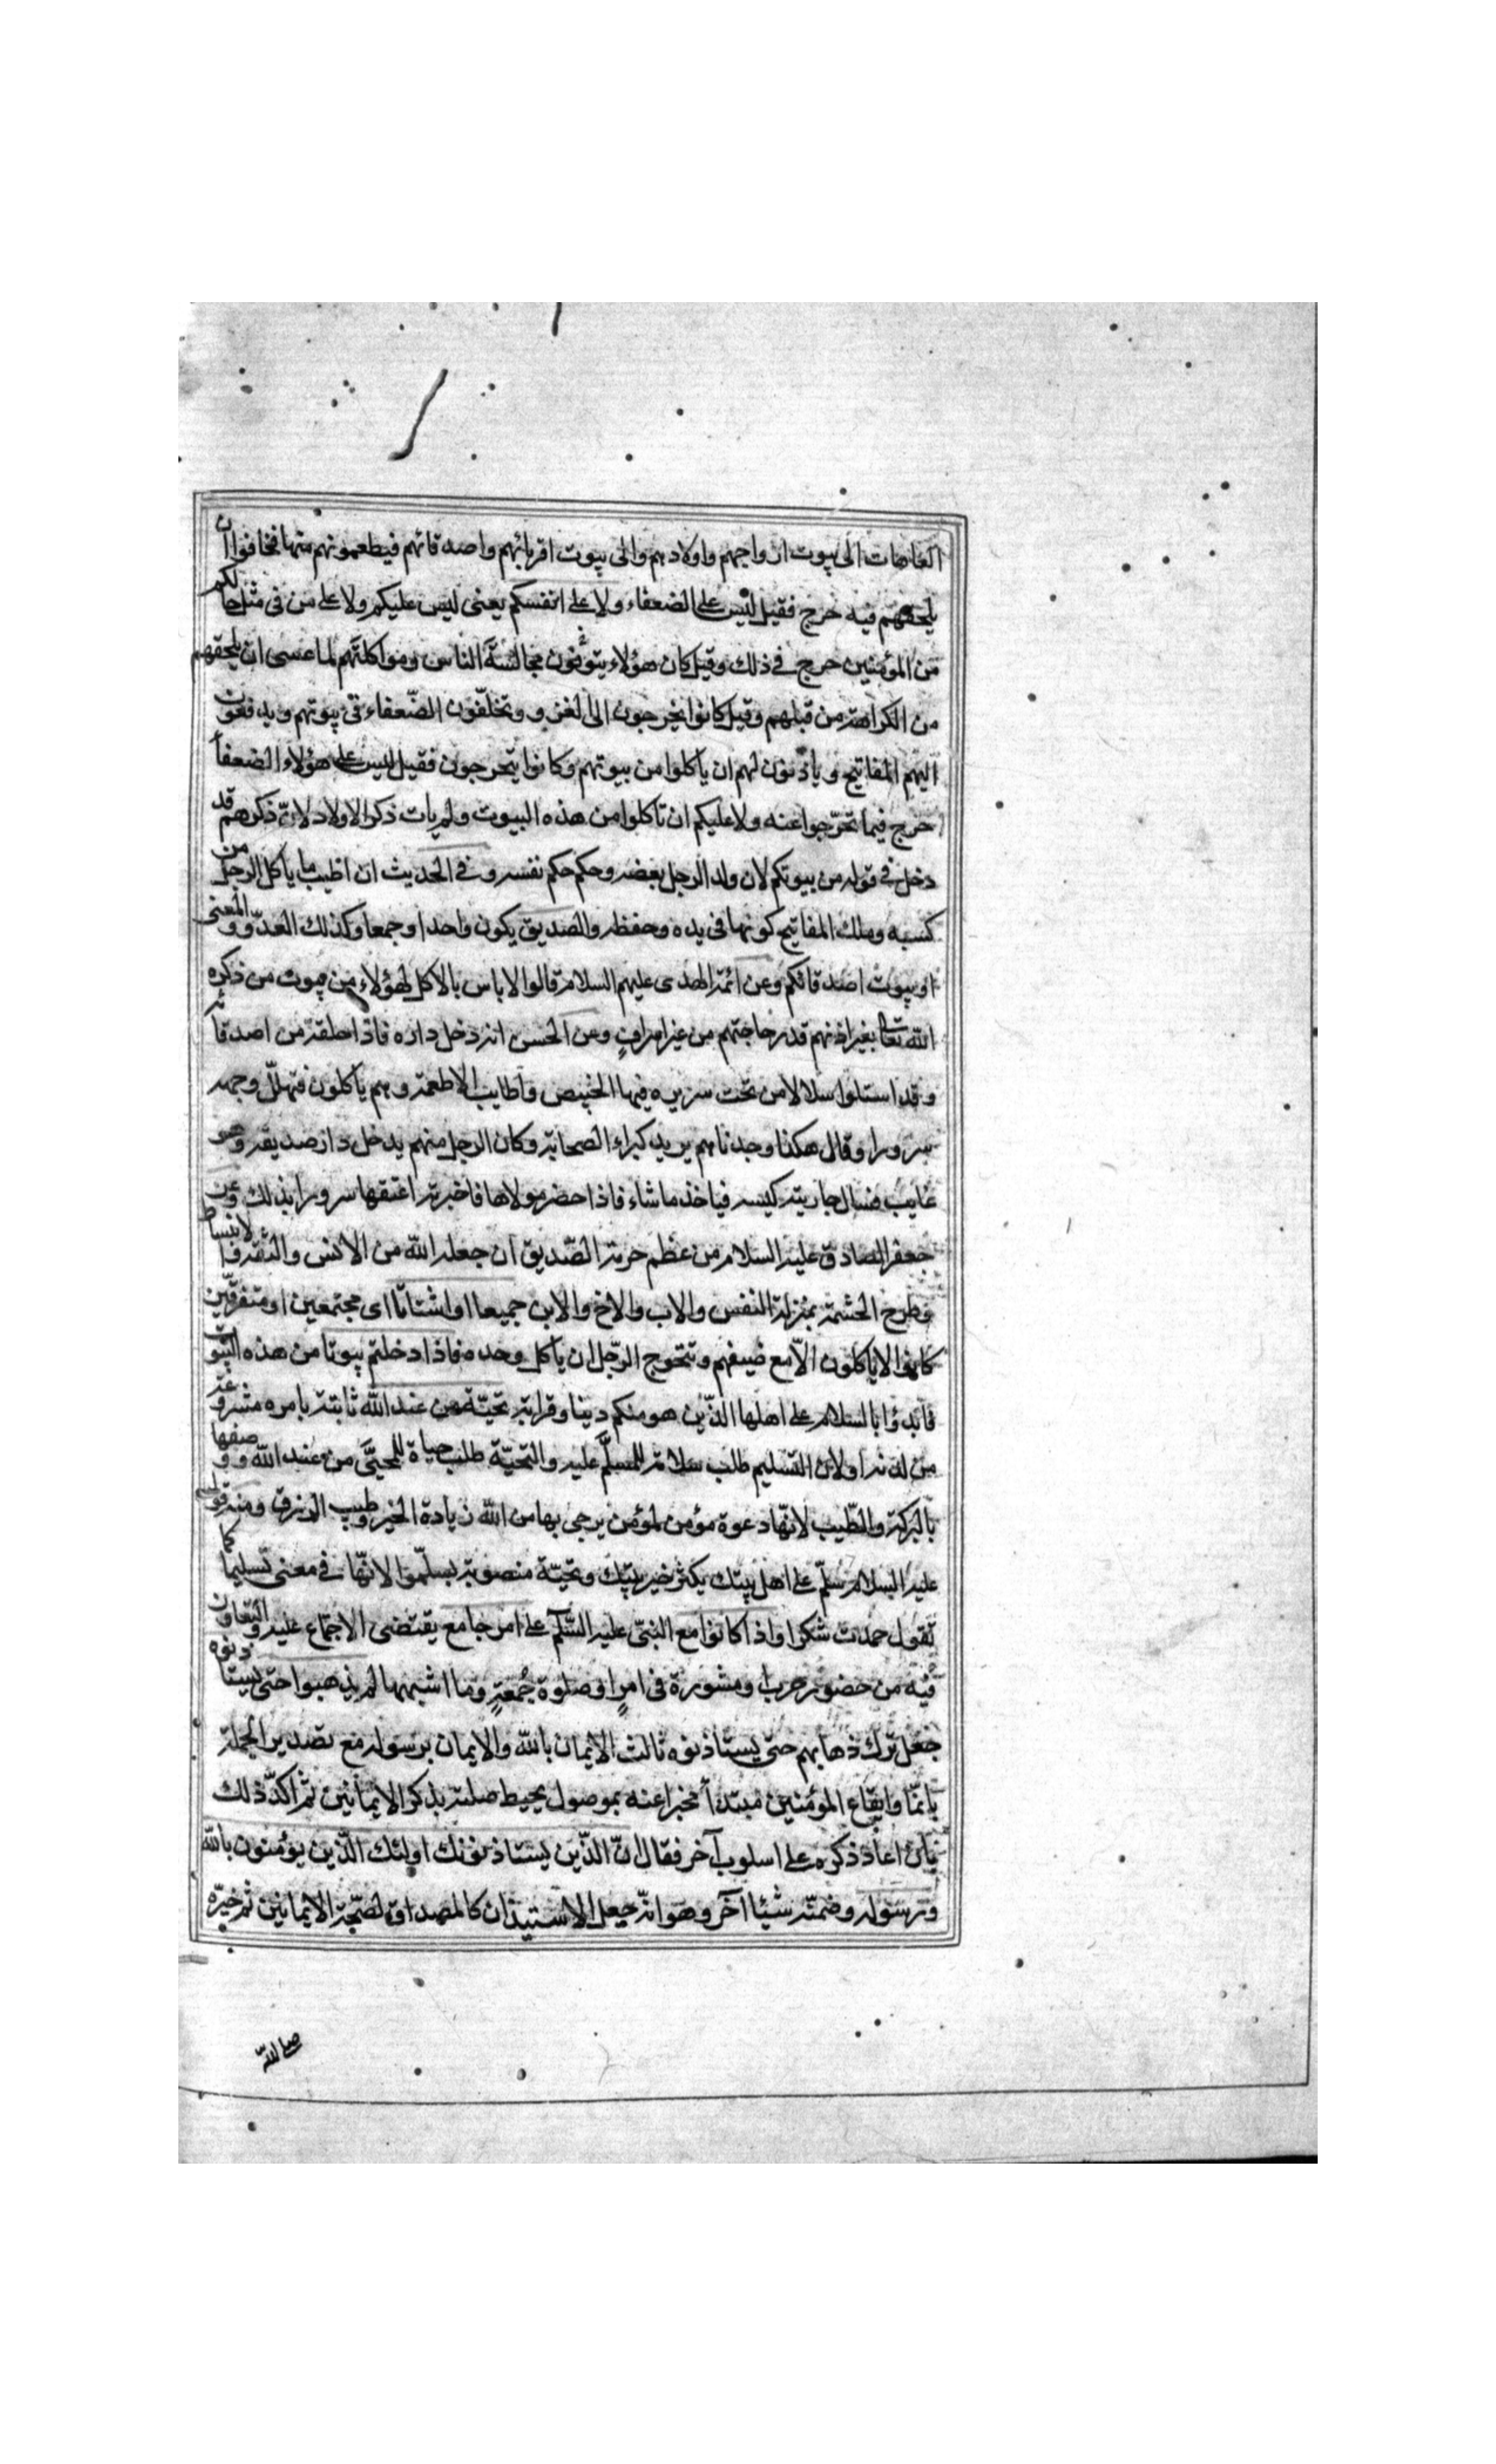 العاهات الى بيوت ازواجهم واولادهم والى بيوت اقربائهم واصدقائهم فيطعمونهم منها فخافوا ان
يلحقهم فيه حرج فقيل ليس على الضعفاء ولا على انفسكم يعنى ليس عليكم ولا على من فى مثل حالكم
من المؤمنين حرج فى ذلك وقيل كان هؤلاء يتوقون مجالسة الناس ومواكلتهم لما عسى ان يلحقهم
من الكراهة من قبلهم وقيل كانوا يخرجون الى الغزو ويخلّفون الضّعفاء فى بيوتهم ويدفعون
اليهم المفاتيح وياذنون لهم ان ياكلوا من بيوتهم وكانوا يتحرجون فقيل ليس على هؤلاء الضعفآ
حرج فيما تحرّجوا عنه ولا عليكم ان تاكلوا من هذه البيوت ولم يات ذكر الاولاد لانّ ذكرهم قد
دخل فى قوله من بيوتكم لان ولد الرجل بعضه وحكمه حكم نفسه وفى الحديث ان اطيب ما ياكل الرجل من
كسبه وملك المفاتيح كونها فى يده وحفظه والصديق يكون واحدا وجمعا وكذلك العدوّ والمعنى
او بيوت اصدقائكم وعن ائمة الهدى عليهم السلام قالوا لا باس بالاكل لهؤلاء من بيوت من ذكره
الله تعالى بغير اذنهم قدر حاجتهم من غير اسراف وعن الحسن انه دخل داره فاذا حلقة من اصدقائه
وقد استلوا سلالا من تحت سريره فيها الخبيص واطايب الاطعمة وهم ياكلون فتهلّل وجهه
سرورا وقال هكذا وجدناهم يريد كبراء الصحابة وكان الرجل منهم يدخل دار صديقه وهو
غايب فيسال جاريته كيسه فياخذ ما شاء فاذا حضر مولاها فاخبرته اعتقها سرورا بذلك وعن
جعفر الصادق عليه السلام من عظم حرمة الصّديق ان جعله الله من الانس والثقة والانبساط
وطرح الحشمة بمنزلة النفس والاب والاخ والابن جميعا او اشتاتا اى مجتمعين او متفرقين
كانوا لا ياكلون الّا مع ضيفهم ويتحرج الرّجل ان ياكل وحده فاذا دخلتم بيوتا من هذه البيوت
فابدؤا بالسلام على اهلها الذين هو منكم دينا وقرابة تحيّة من عند الله ثابتة بامره مشروعة
من لدنه او لان التسليم طلب سلامة للمسلَّم عليه والتحيّة طلب حياة للمحيَّى من عند الله ووصفها
بالبركة والطّيب لانّها دعوة مؤمن لمؤمن يرجى بها من الله زيادة الخير وطيب الرزق ومنه قوله
عليه السلام سلّم على اهل بيتك يكثر خير بيتك وتحيّة منصوبة بسلّموا لانّها فى معنى تسليما كما
تقول حمدت شكرا واذا كانوا مع النبىّ عليه السّلم على امر جامع يقتضى الاجتماع عليه والتعاون
فيه من حضور حرب او مشورة فى امرٍ او صلوة جُمعةٍ وما اشبهها لم يذهبوا حتى يستاذنوه
جعل ترك ذهابهم حتى يستاذنوه ثالث الايمان بالله والايمان برسوله مع تصدير الجملة
بانّما وايقاع المؤمنين مبتدأ مخبرا عنه بموصول يحيط صلته بذكر الايمانين ثم اكدّ ذلك
بان اعاد ذكره على اسلوب آخر فقال انّ الذّين يستاذنونك اولئك الّذين يؤمنون بالله
ورسوله وضمنّه شيئا آخر وهو انّه جعل الاستيذان كالمصداق لصّحة الايمانين ثم خيّره
صلى الله